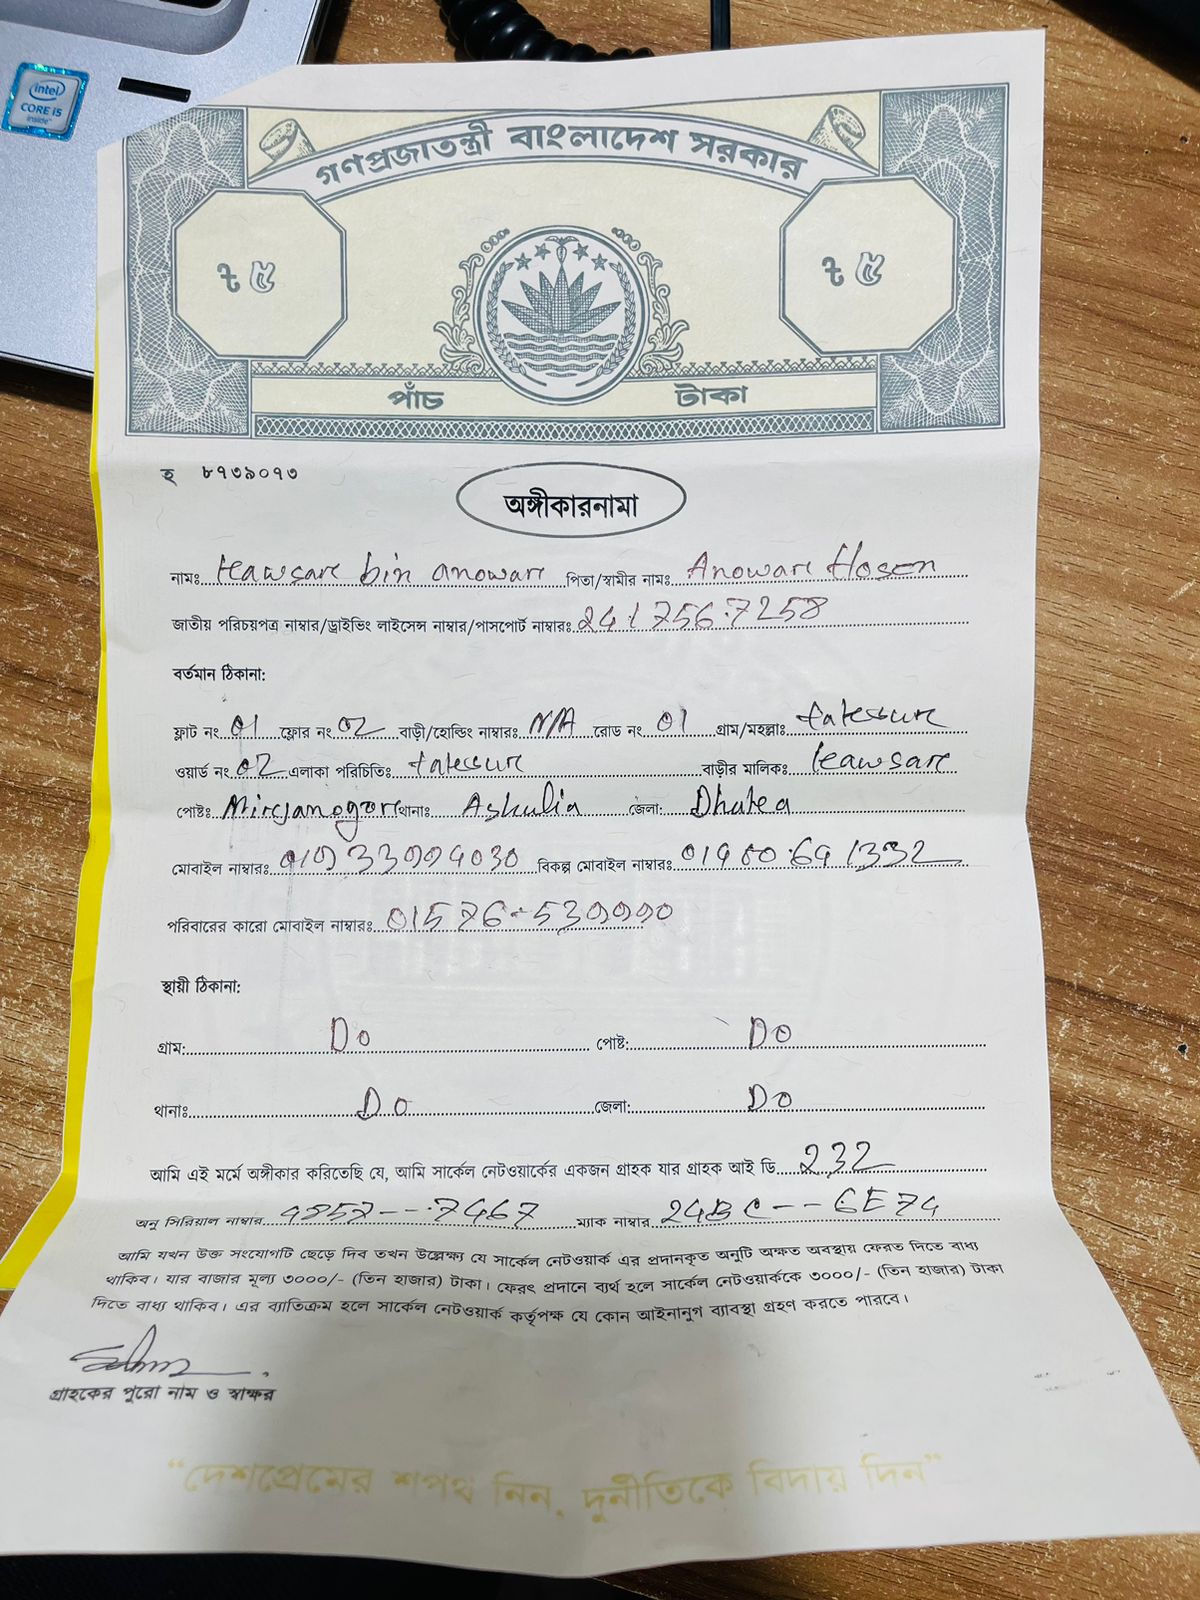 intel
CORE i5
inside
গণপ্রজাতন্ত্রী বাংলাদেশ সরকার
৳ ৫ ৳ ৫
পাঁচ টাকা
হ ৮৭৩৯০৭৩
অঙ্গীকারনামা
নামঃ Kawsar bin anowar পিতা/স্বামীর নামঃ Anowar Hosen
জাতীয় পরিচয়পত্র নাম্বার/ড্রাইভিং লাইসেন্স নাম্বার/পাসপোর্ট নাম্বারঃ
বর্তমান ঠিকানা:
ফ্লাট নং 01 ফ্লোর নং 02 বাড়ী/হোল্ডিং নাম্বারঃ N/A রোড নং 01 গ্রাম/মহল্লাঃ
ওয়ার্ড নং 02 এলাকা পরিচিতিঃ বাড়ীর মালিকঃ Kawsar
পোষ্টঃ থানাঃ Ashulia জেলা: Dhaka
মোবাইল নাম্বারঃ বিকল্প মোবাইল নাম্বারঃ
পরিবারের কারো মোবাইল নাম্বারঃ
স্থায়ী ঠিকানা:
গ্রাম: Do পোষ্ট: Do
থানাঃ Do জেলা: Do
আমি এই মর্মে অঙ্গীকার করিতেছি যে, আমি সার্কেল নেটওয়ার্কের একজন গ্রাহক যার গ্রাহক আই ডি 232
অনু সিরিয়াল নাম্বার ম্যাক নাম্বার 24BC---6E74
আমি যখন উক্ত সংযোগটি ছেড়ে দিব তখন উল্লেক্ষ্য যে সার্কেল নেটওয়ার্ক এর প্রদানকৃত অনুটি অক্ষত অবস্থায় ফেরত দিতে বাধ্য
থাকিব। যার বাজার মূল্য ৩০০০/- (তিন হাজার) টাকা। ফেরৎ প্রদানে ব্যর্থ হলে সার্কেল নেটওয়ার্ককে ৩০০০/- (তিন হাজার) টাকা
দিতে বাধ্য থাকিব। এর ব্যাতিক্রম হলে সার্কেল নেটওয়ার্ক কর্তৃপক্ষ যে কোন আইনানুগ ব্যাবস্থা গ্রহণ করতে পারবে।
গ্রাহকের পুরো নাম ও স্বাক্ষর
“দেশপ্রেমের শপথ নিন, দুর্নীতিকে বিদায় দিন”